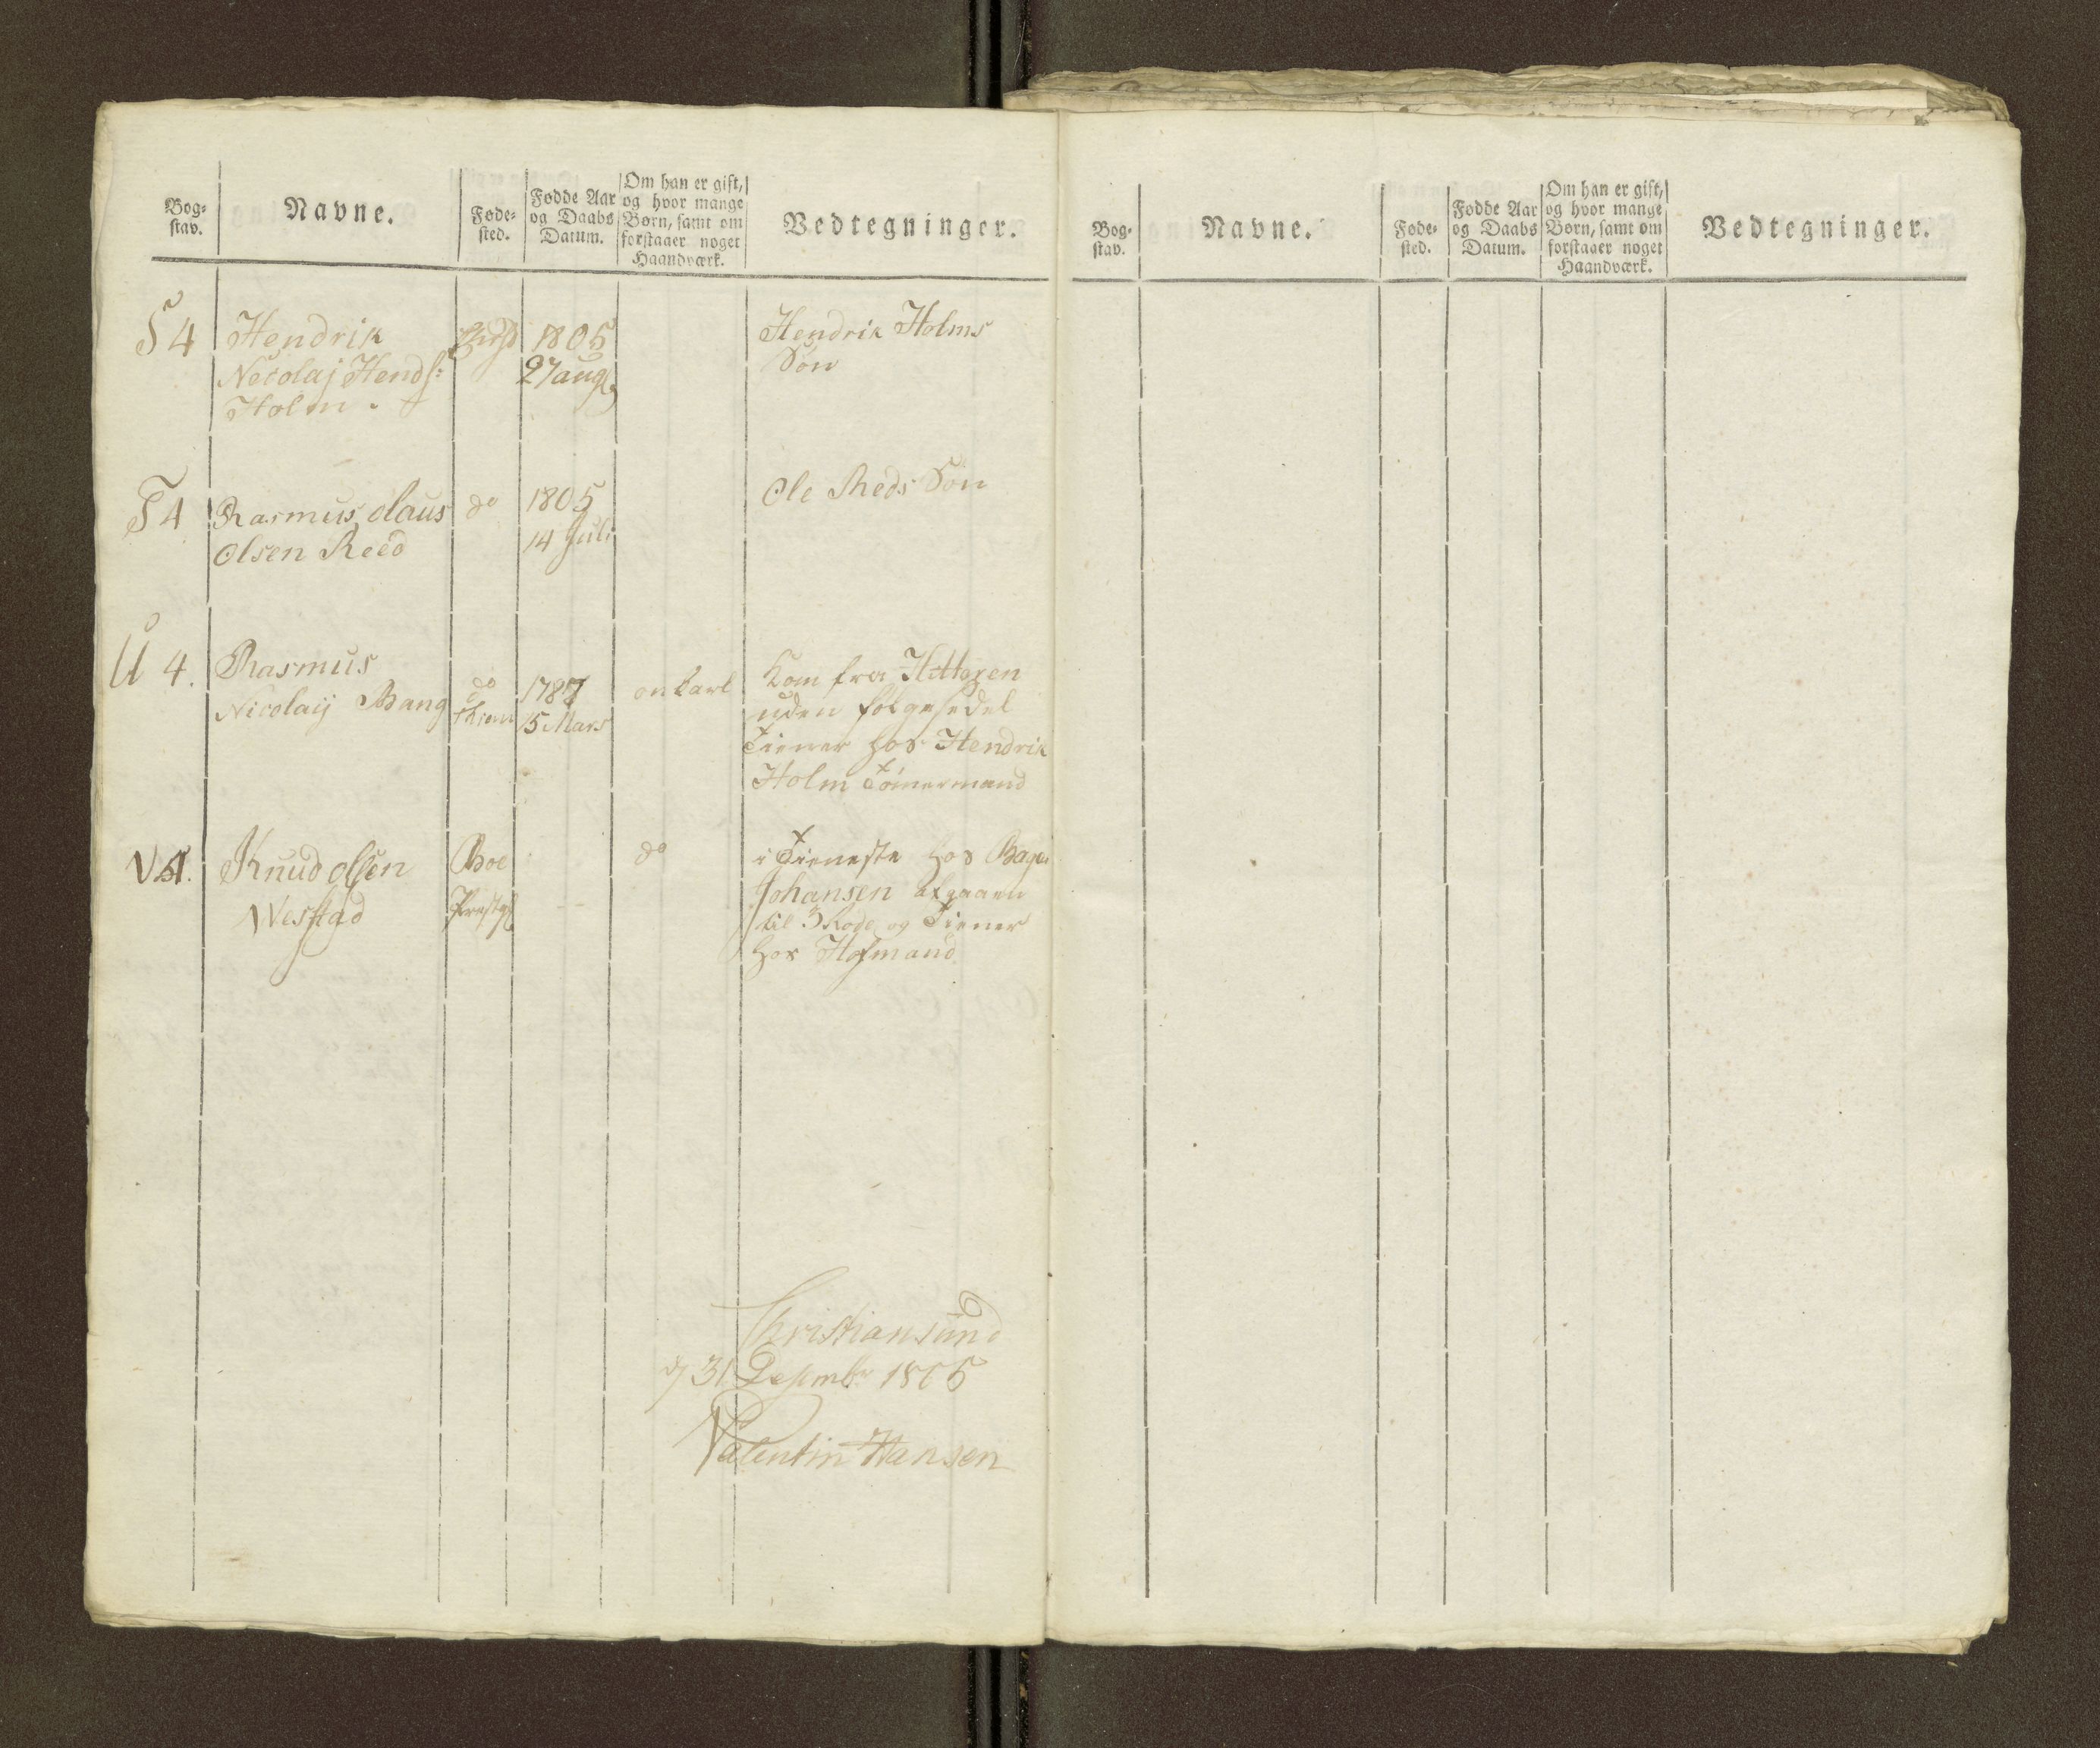 Bog-
stav.
Navne.
Føde-
sted.
Fødde Aar
og Daabs
Datum.
Om han er gift,
og hvor mange
Børn, samt om
forstaaer noget
Haandværk.
Vedtegninger.
S 4
Hendrik
Necolaj Hends:
Holm.
1805
27 aug
Hendrik Holms
Søn
T 4
Rasmus olaus
Olsen Reed
do
1805
14 Juli
Ole Reds Søn
U 4.
Rasmus
Nicolaij Bang
do
1787
15 Mars
Kom fra Hitteren
uden følgesedel
Tiener hos Hendrik
Holm Tömermand
V 4.
Knud olsen
Westad
Boe
Prestg
do
i Tieneste hos Bager
Johansen afgaaen
til 3 Rode og Tiener
hos Hofmand
Christiansund
d 31 Desembr 1805
Valentin Hansen
Bog-
stav.
Navne.
Føde-
sted.
Fødde Aar
og Daabs
Datum.
Om han er gift,
og hvor mange
Børn, samt om
forstaaer noget
Haandværk.
Vedtegninger.